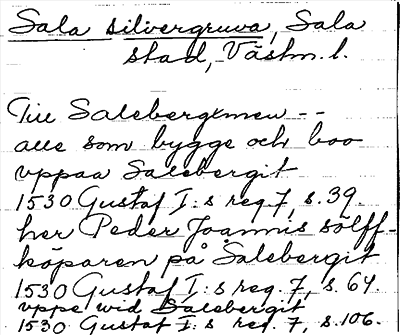 Sala silvergruva, Sala
stad, Västm. l.
Till Salebergxmen --
alle som bygge och boo
vppaa Salebergit
1530 Gustaf I:s reg. 7, s. 39.
her Peder Joannis sölff-
köparen på Salebergit
1530 Gustaf I:s reg. 7, s. 64.
vppe wid Salebergit
1530 Gustaf I:s reg. 7, s. 106.